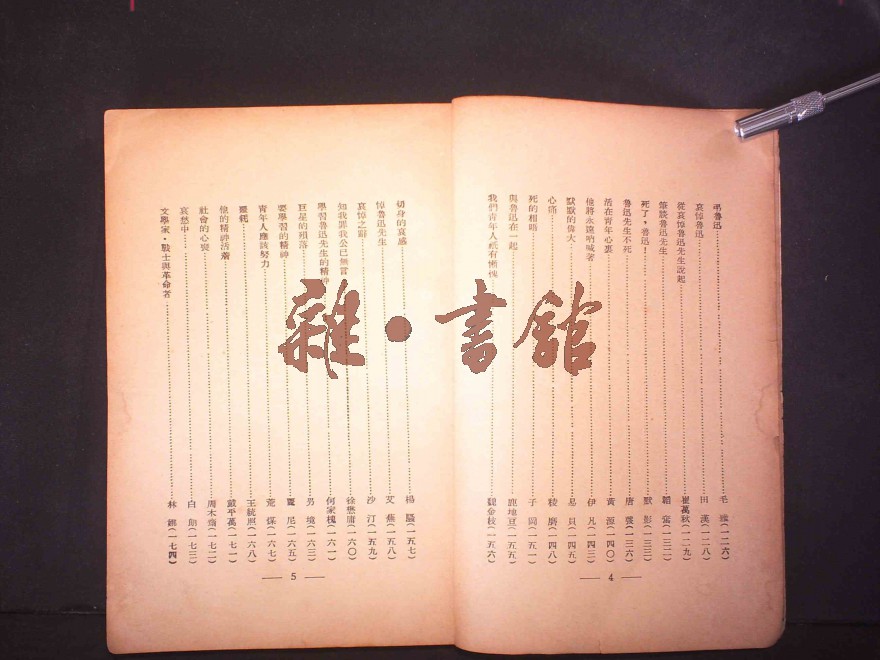 弔魯迅……毛 (一二六)
哀悼魯迅……田 漢(一二八)
從哀悼魯迅先生說起……崔萬秋(一二九)
筆談魯迅先生……(一三二)
死了,魯迅!……默 影(一三三)
魯迅先生不死……唐 弢(一三六)
活在青年心裏……黃 源(一四〇)
他將永遠吶喊著……伊 凡(一四三)
默默的偉大……易 貝(一四五)
心痛……稜 磨(一四八)
死的相晤……子 岡(一五一)
與魯迅在一起……鹿地亘(一五五)
我們青年人祇有慚愧……魏金枝(一五六)
— 4 —
切身的哀感……楊 騷(一五七)
悼魯迅先生……艾 蕪(一五八)
哀悼之辭……沙 汀(一五九)
知我罪我公已無言……徐懋庸(一六〇)
學習魯迅先生的精神……何家槐(一六一)
巨星的殞落……另 境(一六三)
要學習的精神……麗 尼(一六五)
青年人應該努力……荒 煤(一六七)
噩耗……王統照(一六八)
他的精神活着……戴平萬(一七一)
社會的心喪……周木齋(一七二)
哀愁中……白 (一七三)
文學家・戰士與革命者……林 (一七四)
— 5 —
雜・書館